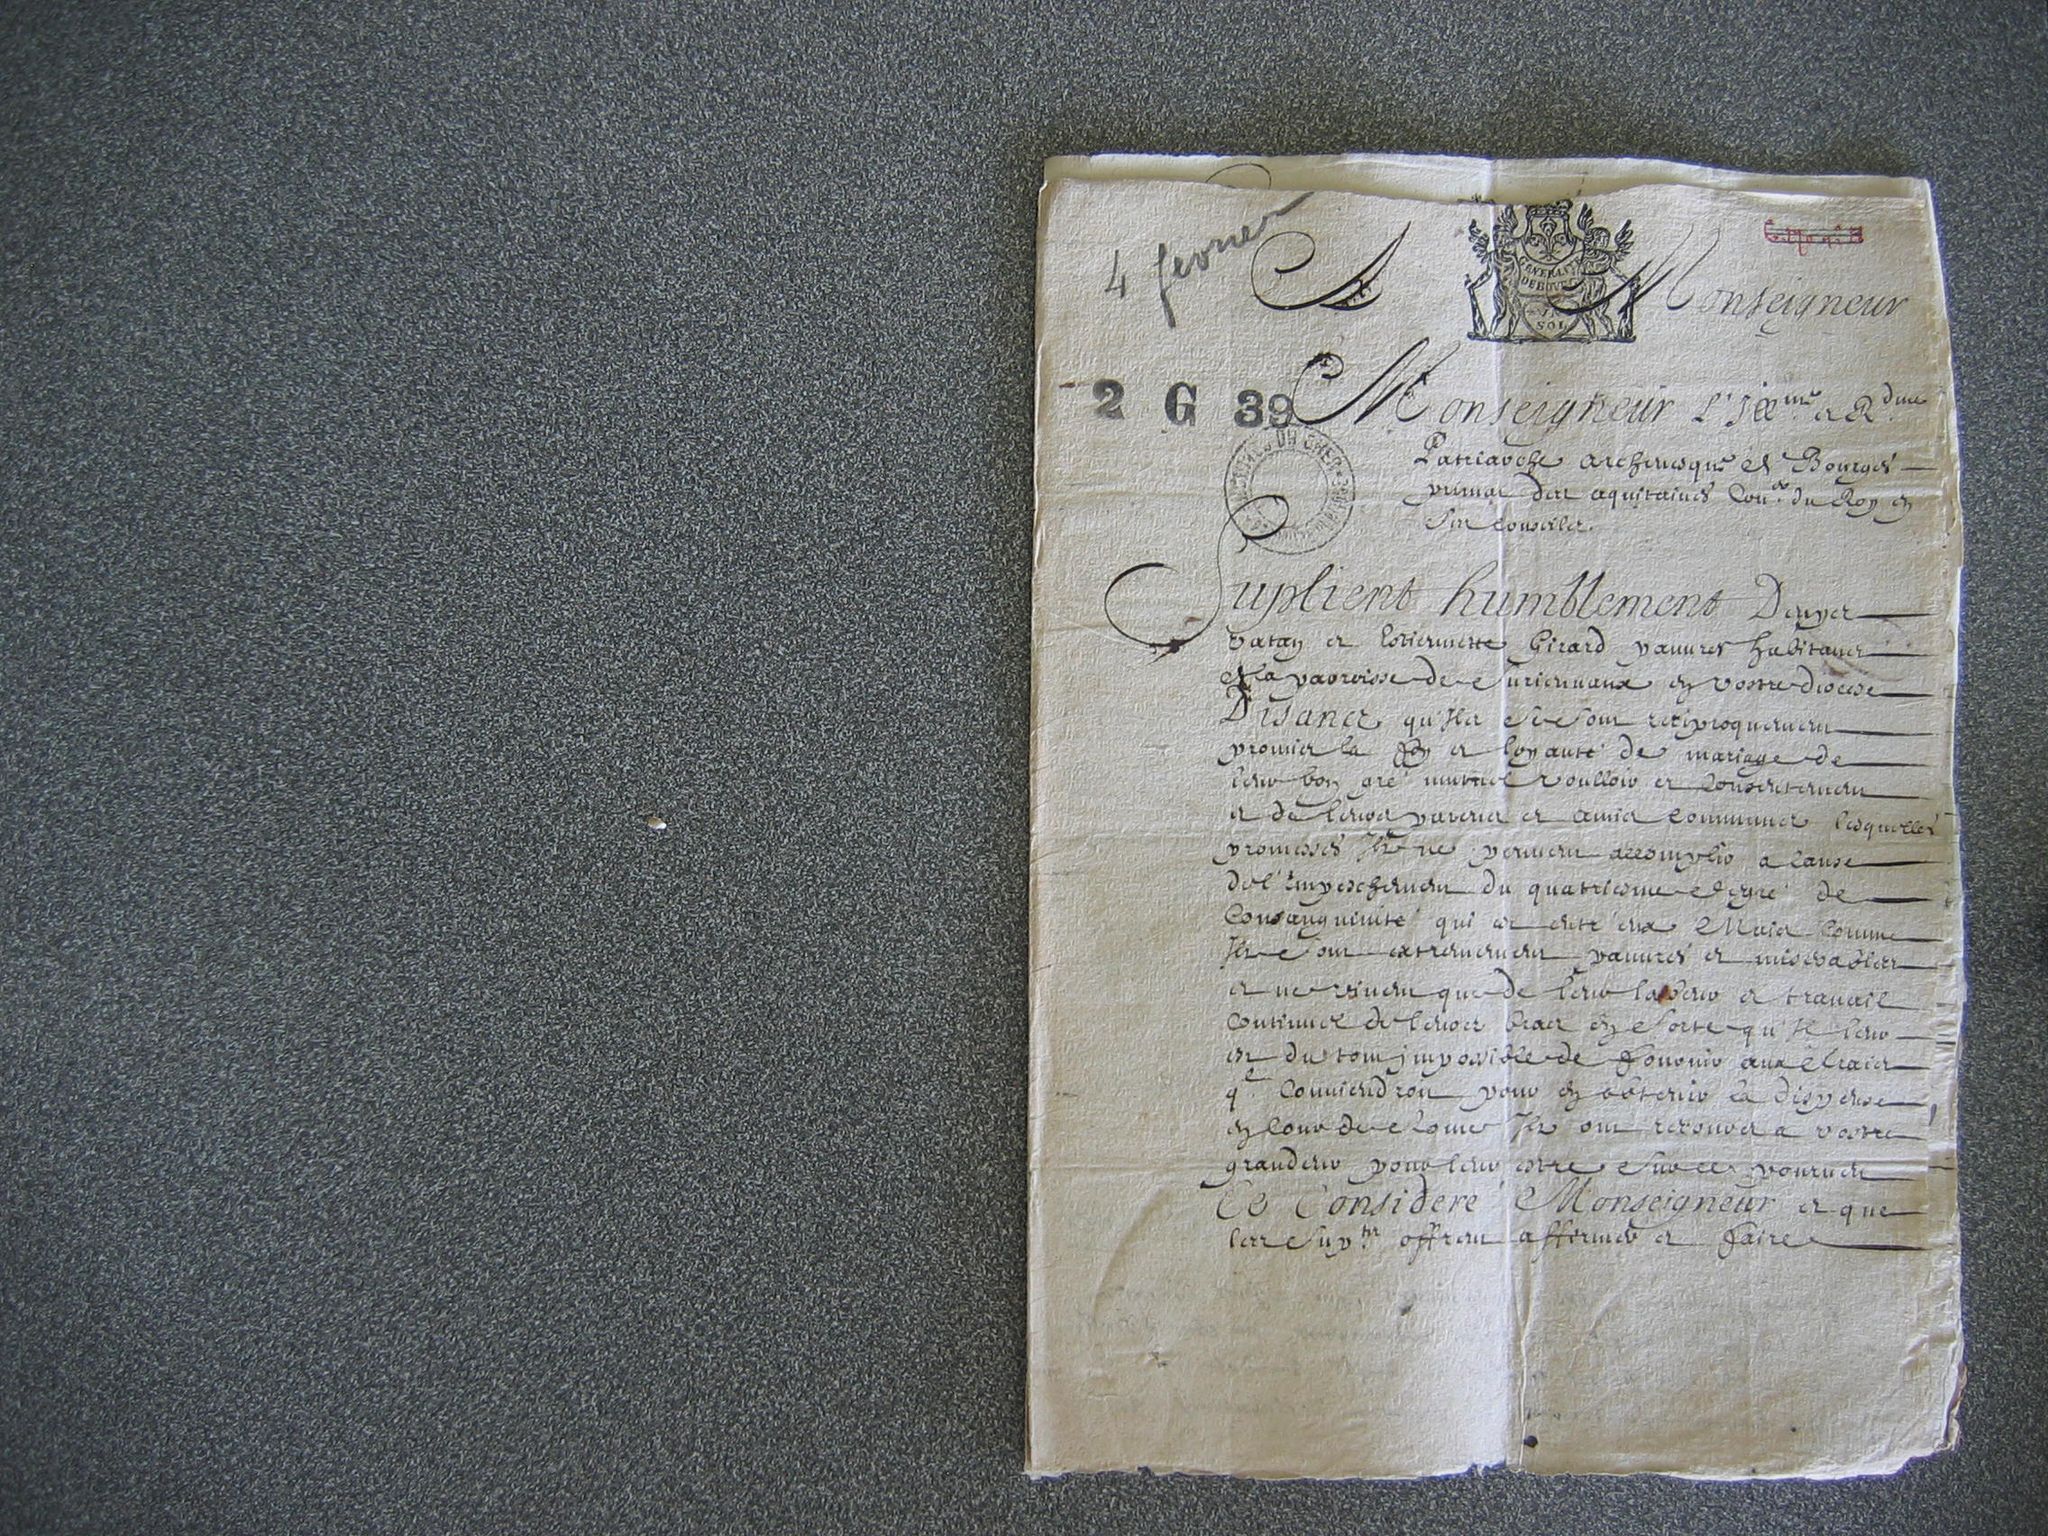 4 fevrier
A Monseigneur
GENERALITE
DE BOURGES
SOL
2 G 39
Monseigneur l'Ill.me et R.dme
Patriarche archevesque de Bourges
primat des aquitaines Con.er du Roy en
ses conseils.
ARCHIVES DU CHER
Suplient humblement Denys
vatan et Estiennette Girard pauvres habitans
de la parroisse de en vostre diocese
Disans qu'ils se sont reciproquement
promis la foy et loyauté de mariage de
leur bon gré mutuel voulloir et consentement
et de leurs parens et amis communs lesquelles
promesses Ils ne peuvent accomplir a cause
de l'empeschement du quatriesme degré de
Consanguinité qui est entr'eux Mais Comme
Ils sont extremement pauvres et miserables
et ne vivent que de leur labeur et travail
continuel de leurs bras en sorte qu'Il leur
est du tout impossible de fournir aux fraicts
q. conviendroit pour en obtenir la dispense
en cour de Rome Ils ont recours a vostre
grandeur pour leur estre sur ce pourveu
Ce Consideré Monseigneur et que
les sup.ns offrent affirmer et faire